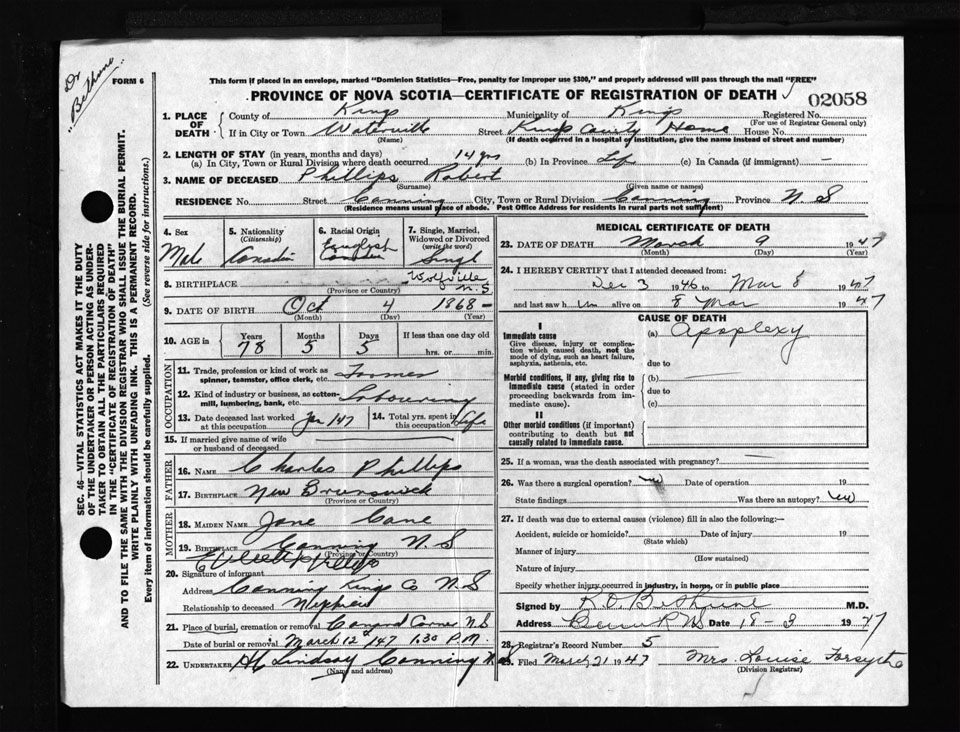 Dr
Bethune
FORM 6
This form if placed in an envelope, marked "Dominion Statistics—Free, penalty for improper use $300," and properly addressed will pass through the mail "FREE"
PROVINCE OF NOVA SCOTIA—CERTIFICATE OF REGISTRATION OF DEATH
02058
1. PLACE OF DEATH
County of Kings Municipality of Kings Registered No.
(For use of Registrar General only)
If in City or Town Waterville Street Kings County Home House No.
(Name) (If death occurred in a hospital or institution, give the name instead of street and number)
2. LENGTH OF STAY (in years, months and days)
(a) In City, Town or Rural Division where death occurred 14 yrs (b) In Province Life (c) In Canada (if immigrant) —
3. NAME OF DECEASED Phillips Robert
(Surname) (Given name or names)
RESIDENCE No. Street Canning City, Town or Rural Division Canning Province N. S
(Residence means usual place of abode. Post Office Address for residents in rural parts not sufficient)
4. Sex Male
5. Nationality (Citizenship) Canadian
6. Racial Origin English Canadian
7. Single, Married, Widowed or Divorced (write the word) Single
8. BIRTHPLACE Wolfville N. S
(Province or Country)
9. DATE OF BIRTH Oct 4 1868
(Month) (Day) (Year)
10. AGE in Years 78 Months 5 Days 5 If less than one day old
hrs. or min.
OCCUPATION
11. Trade, profession or kind of work as spinner, teamster, office clerk, etc. Farmer
12. Kind of industry or business, as cotton-mill, lumbering, bank, etc. Labouring
13. Date deceased last worked at this occupation Jan 147
14. Total yrs. spent in this occupation Life
15. If married give name of wife or husband of deceased
FATHER
16. NAME Charles Phillips
17. BIRTHPLACE New Brunswick
(Province or Country)
MOTHER
18. MAIDEN NAME Jane Cane
19. BIRTHPLACE Canning N. S
(Province or Country)
20. Signature of informant
Address Canning Kings Co N. S
Relationship to deceased
21. Place of burial, cremation or removal N S
Date of burial or removal March 12 147 1.30 P. M.
22. UNDERTAKER Lindsay Canning
(Name and address)
MEDICAL CERTIFICATE OF DEATH
23. DATE OF DEATH March 9 1947
(Month) (Day) (Year)
24. I HEREBY CERTIFY that I attended deceased from:
Dec 3 1946 to Mar 8 1947
and last saw him alive on 8 Mar 1947
CAUSE OF DEATH
I
Immediate cause
Give disease, injury or complication which caused death, not the mode of dying, such as heart failure, asphyxia, asthenia, etc.
(a) Apoplexy
due to
Morbid conditions, if any, giving rise to immediate cause (stated in order proceeding backwards from immediate cause).
(b)
due to
(c)
II
Other morbid conditions (if important) contributing to death but not causally related to immediate cause.
25. If a woman, was the death associated with pregnancy? —
26. Was there a surgical operation? no Date of operation 19
State findings Was there an autopsy? no
27. If death was due to external causes (violence) fill in also the following:—
Accident, suicide or homicide? Date of injury 19
(State which)
Manner of injury
(How sustained)
Nature of injury
Specify whether injury occurred in industry, in home, or in public place
Signed by K. O. Bethune M.D.
Address Date 18-3 1947
28. Registrar's Record Number 5
29. Filed March 21 1947 Mrs. Louise Forsythe
(Division Registrar)
SEC. 46—VITAL STATISTICS ACT MAKES IT THE DUTY
OF THE UNDERTAKER OR PERSON ACTING AS UNDER-
TAKER TO OBTAIN ALL THE PARTICULARS REQUIRED
IN THE "CERTIFICATE OF REGISTRATION OF DEATH"
AND TO FILE THE SAME WITH THE DIVISION REGISTRAR WHO SHALL ISSUE THE BURIAL PERMIT.
WRITE PLAINLY WITH UNFADING INK. THIS IS A PERMANENT RECORD.
Every item of information should be carefully supplied. (See reverse side for instructions.)